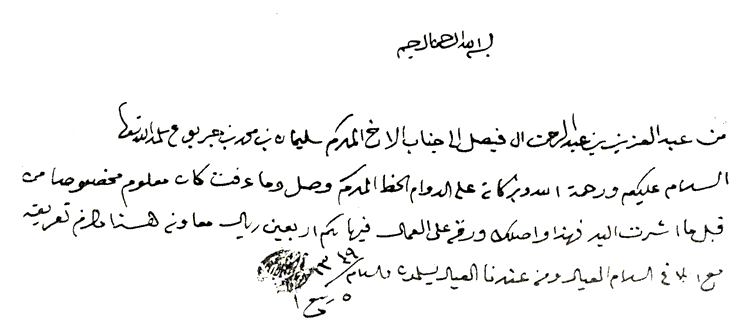 بسم الله الرحمن الرحيم
من عبد العزيز بن عبد الرحمن ال فيصل الى جناب الاخ المكرم سليمان بن محمد بن جربوع سلمه الله تعالى
السلام عليكم ورحمة الله وبركاته على الدوام الخط المكرم وصل وما عرفت كان معلوم مخصوصا من
قبل ما اشرت اليه فهذا واصلك ورقه على العمال فيها لكم اربعين ريال معاونه هذا مالزم تعريفه
مع السلام العيال ومن عندنا العيال يسلمون والسلام
٥ ربيع ١ ١٣٤٩